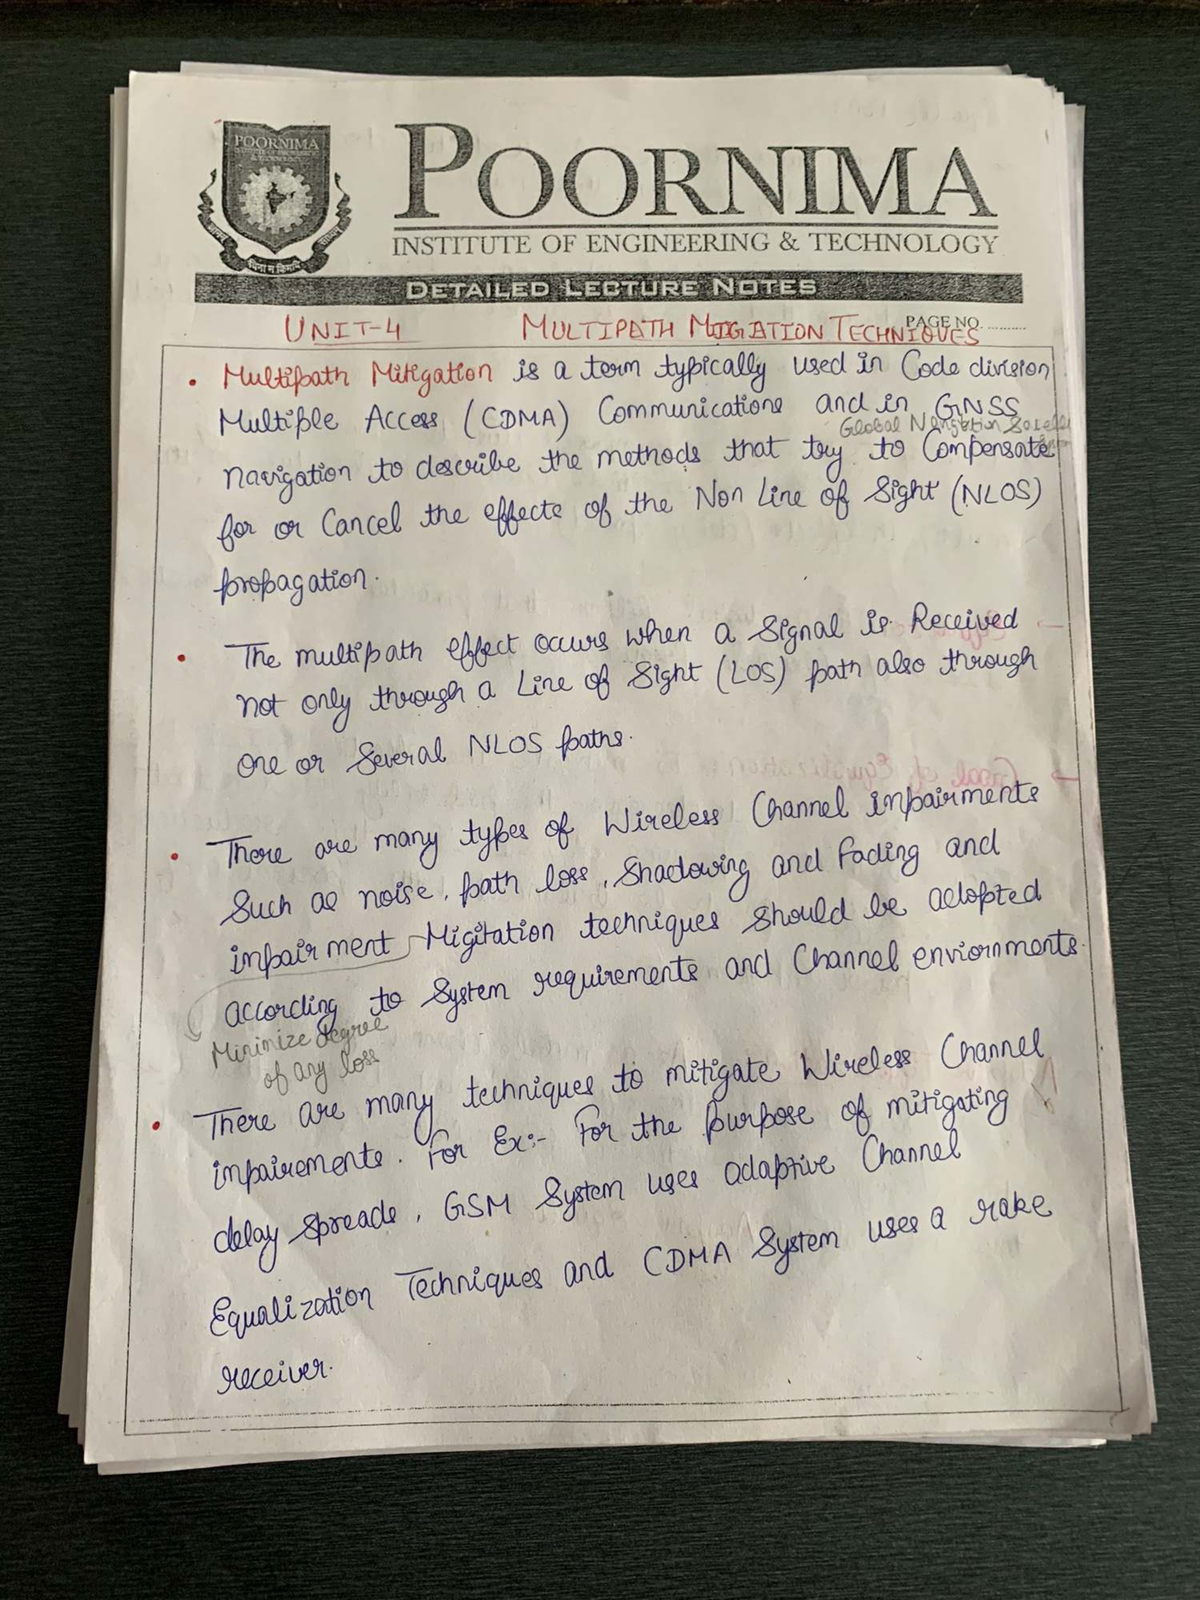 POORNIMA
INSTITUTE OF ENGINEERING
& TECHNOLOGY
POORNIMA
INSTITUTE OF ENGINEERING & TECHNOLOGY
DETAILED LECTURE NOTES
PAGE NO. ..........
UNIT-4 MULTIPATH MIGIGATION TECHNIQUES
• Multipath Mitigation is a term typically used in Code division
Multiple Access (CDMA) Communications and in GNSS
Global Navigation
navigation to describe the methods that try to Compensate
for or Cancel the effects of the Non Line of Sight (NLOS)
propagation.
• The multipath effect occurs when a Signal is Received
not only through a Line of Sight (LOS) path also through
one or Several NLOS paths.
• There are many types of Wireless Channel impairments
Such as noise, path loss, Shadowing and Fading and
impairment Migitation techniques Should be adopted
according to System requirements and Channel enviornments.
Minimize degree
of any loss
• There are many techniques to mitigate Wireless Channel
impairements. For Ex:- For the purpose of mitigating
delay spreads, GSM System uses adaptive Channel
Equalization Techniques and CDMA System uses a rake
receiver.